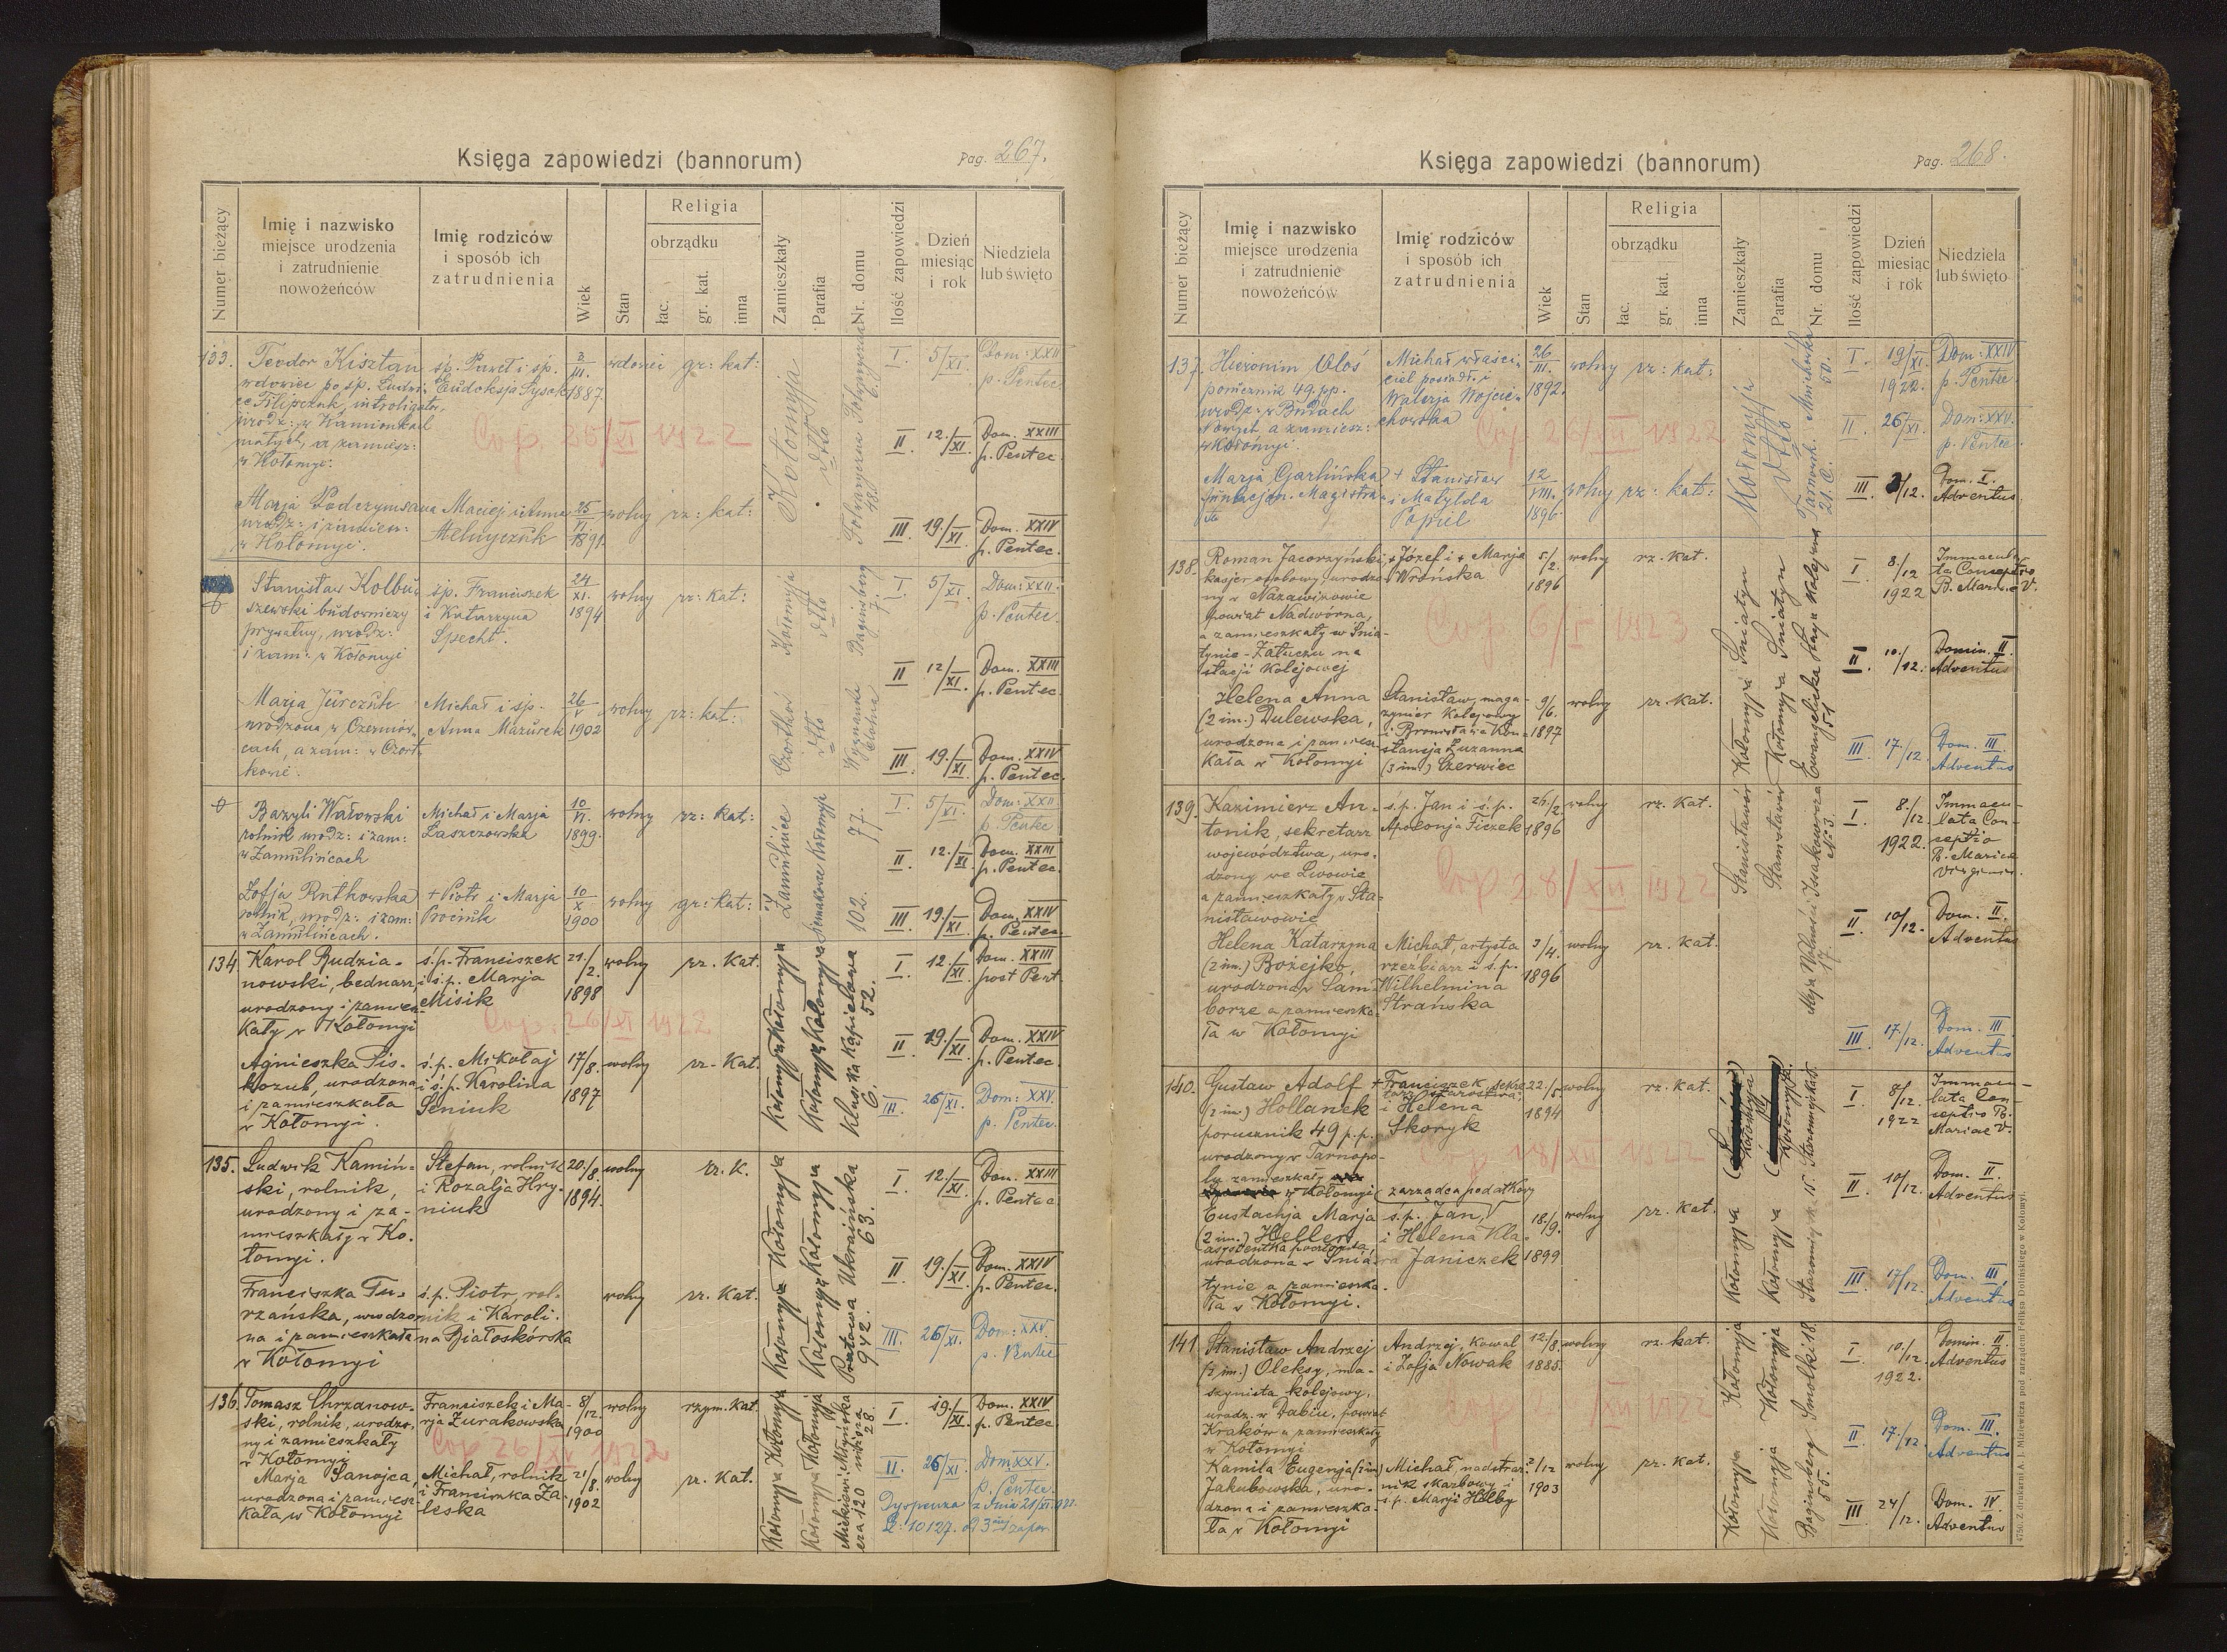 Księga zapowiedzi (bannorum)
Pag. 267.
Numer bieżący
Imię i nazwisko
miejsce urodzenia
i zatrudnienie
nowożeńców
Imię rodziców
i sposób ich
zatrudnienia
Wiek
Stan
Religia
obrządku
łac.
gr. kat.
inna
Zamieszkały
Parafia
Nr. domu
Ilość zapowiedzi
Dzień
miesiąc
i rok
Niedziela
lub święto
133.
Teodor Kisztan
wdowiec po śp. Ludwi-
ce Filipczuk, introligator,
urodz: w Kamionkach
małych, a zamiesz:
w Kołomyi.
śp. Paweł i śp.
Eudoksja Sysak
3/III. 1887
wdowiec gr: kat:
Kołomyja
dtto
I. 5/XI. Dom: XXII
p. Pentec.
II 12./XI. Dom. XXIII
p. Pentec.
Cop. 25/XI 1922
urodz: i zamiesz:
w Kołomyi.
Maciej i Anna
Melnyczuk
25/VI. 1891.
wolny rz: kat:
III 19./XI Dom. XXIV
p. Pentec.
Stanisław Kolbu-
szewski budowniczy
prywatny, urodz:
i zam: w Kołomyi
śp. Franciszek
i Katarzyna
Specht.
24/XI. 1894
wolny rz: kat:
Kołomyja
dtto
Baginsberg 7.
I. 5/XI. Dom: XXII.
p. Pentec.
II 12/XI. Dom. XXIII
p. Pentec.
Marja Jurczuk
urodzona w Czerniow-
cach, a zam: w Czort-
kowie.
Michał i śp.
Anna Mazurek
26/V 1902
wolny rz: kat:
Czortków
dtto
Wygnanka
III 19./XI. Dom. XXIV
p. Pentec.
Bazyli Wałowski
rolnik urodz: i zam:
w Zamulińcach
Michał i Marja
Laszczowska
10/VI. 1899.
wolny rz: kat:
Zamulińce
77.
I. 5/XI. Dom: XXII
p. Pentec
II. 12./XI. Dom. XXIII
p. Pentec.
Zofja Rutkowska
rolnik, urodz: i zam:
w Zamulińcach.
+ Piotr i Marja
10/X 1900
wolny gr: kat:
102.
III 19./XI. Dom. XXIV
p. Pentec
134.
Karol Rudzia-
nowski, bednarz,
urodzony i zamiesz-
kały w Kołomyi
ś.p. Franciszek
i ś.p. Marja
Misik
21./2. 1898
wolny rz. kat.
Kołomyja
Kołomyja
Kąpielowa 52.
I. 12./XI. Dom. XXIII
post Pent.
II 19./XI. Dom. XXIV
p. Pentec.
Cop. 26/XI 1922
Agnieszka Pis-
kozub, urodzona
i zamieszkała
w Kołomyi.
ś.p. Mikołaj
i ś.p. Karolina
Seniuk
17/8. 1897
wolny rz. kat.
Kołomyja
Kołomyja
Klaśka 6.
III. 26/XI. Dom: XXV.
p. Pentec.
135.
Ludwik Kamiń-
ski, rolnik,
urodzony i za-
mieszkały w Ko-
łomyi.
Stefan, rolnik
i Rozalja Hry-
niuk
20./8. 1894.
wolny rz. k.
Kołomyja
Kołomyja
Ukraińska 63.
I 12./XI. Dom. XXIII
p. Pentec
II 19./XI. Dom. XXIV
p. Pentec.
Franciszka Tu-
rzańska, urodzo-
na i zamieszkała
w Kołomyi
ś.p. Piotr, rol-
nik i Karoli-
na Białoskórska
wolny rz. kat.
Kołomyja
Kołomyja
942.
III. 26/XI. Dom: XXV.
p. Pentec
136.
Tomasz Chrzanow-
ski, rolnik, urodzo-
ny i zamieszkały
w Kołomyi
Franciszek i Ma-
rja Żurakowska
8/12. 1900
wolny rzym. kat.
Kołomyja
Kołomyja
Młyńska niższa 28.
I 19./XI. Dom. XXIV
p. Pentec
Cop 26/XI 1922
Marja Sanojca,
urodzona i zamiesz-
kała w Kołomyi
Michał, rolnik
i Franciszka Za-
leska
21/8. 1902
wolny rz. kat.
Kołomyja
Kołomyja
Mickiewi-
cza 120
II. 26/XI. Dom XXV.
p. Pentec.
Dyspenza z dnia 21/XI. 922.
L: 10127. od 3ciej zapow.
Księga zapowiedzi (bannorum)
Pag. 268.
Numer bieżący
Imię i nazwisko
miejsce urodzenia
i zatrudnienie
nowożeńców
Imię rodziców
i sposób ich
zatrudnienia
Wiek
Stan
Religia
obrządku
łac.
gr. kat.
inna
Zamieszkały
Parafia
Nr. domu
Ilość zapowiedzi
Dzień
miesiąc
i rok
Niedziela
lub święto
137.
Hieronim Głoś
porucznik 49 pp.
urodz: w Brodach
starych a zamiesz:
w Kołomyi.
Michał właści-
ciel posiadł. i
Walerja Wojcie-
chowska
26/III. 1892.
wolny rz: kat:
Kołomyja
dtto
50.
I. 19/XI. 1922. Dom: XXIV
p. Pentec.
II 26/XI. Dom: XXV.
p. Pentec.
Cop 26/XII 1922
Marja Garlińska
funkcjon. Magistra-
tu
+ Stanisław
i Matylda
Popiel
12/VIII. 1896.
wolny rz: kat:
Tarnowsk. 21. C.
III. 3/12. Dom. I.
Adventus
138.
Roman Jacorzyński,
kasjer osobowy, urodzo-
ny w Nazawizowie
powiat Nadwórna,
a zamieszkały w Śnia-
tynie-Załuczu na
stacji kolejowej
+ Józef i + Marja
Wrońska
5/2. 1896
wolny rz. kat.
Śniatyn
Śniatyn
Stacja Kolejowa
I 8./12 1922 Immacula-
ta Conceptio
B. Mariae V.
II 10./12. Domin. II.
Adventus
Cop 6/I 1923
Helena Anna
(2 im.) Dulewska,
urodzona i zamiesz-
kała w Kołomyi
Stanisław, maga-
zynier kolejowy
i Bronisława Kon-
stancja Zuzanna
(3 im.) Czerwiec
9/6. 1897
wolny rz. kat.
Kołomyja
Kołomyja
Ewangelicka 51
III 17./12 Dom. III.
Adventus
139.
Kazimierz An-
tonik, sekretarz
województwa, uro-
dzony we Lwowie
a zamieszkały w Sta-
nisławowie
ś.p. Jan i ś.p.
Apolonja Ficzek
1896
wolny rz. kat.
Stanisławów
Stanisławów
Issakowicza № 3.
I 8./12. 1922. Immacu-
lata Con-
ceptio
B. Mariae
Virginis.
II 10/12. Dom. II.
Adventus
Cop 28/XII 1922
Helena Katarzyna
(2 im.) Bożejko,
urodzona w Sam-
borze, a zamieszka-
ła w Kołomyi
Michał, artysta
rzeźbiarz i ś.p.
Wilhelmina
Strańska
3/4. 1896
wolny rz. kat.
17.
III. 17/12. Dom. III
Adventus
140.
Gustaw Adolf
(2 im.) Hollanek
porucznik 49 p.p.
urodzony w Tarnopo-
lu zamieszkały
w Kołomyi
+ Franciszek, sekre-
tarz starostwa,
i Helena
Skoryk
22./5. 1894
wolny rz. kat.
Kołomyja
Kołomyja
I 8/12. 1922 Immacu-
lata Con-
ceptio B.
Mariae V.
II 10/12. Dom. II.
Adventus
Cop 18/XII 1922
Eustachja Marja
(2 im.) Heller,
asystentka pocztowa,
urodzona w Śnia-
tynie a zamieszka-
ła w Kołomyi.
zarządca podatkowy
ś.p. Jan,
i Helena Kla-
ra Janiczek
18./9. 1899
wolny rz. kat.
Kołomyja
Kołomyja
III. 17/12. Dom. III.
Adventus
141
Stanisław Andrzej
(2 im.) Oleksy, ma-
szynista kolejowy,
urodz. w Dabiu, powiat
Kraków a zamieszkały
w Kołomyi
Andrzej, kowal
i Zofja Nowak
12./8. 1885.
wolny rz. kat.
Kołomyja
Kołomyja
Smolki 18.
I 10/12. 1922. Domin. II
Adventus
II 17./12. Dom. III.
Adventus
Kamila Eugenja (2 im)
Jakubowska, uro-
dzona i zamieszka-
ła w Kołomyi
Michał, nadstraż-
nik skarbowy i
ś.p. Marji Hołby
2/12 1903
wolny rz. kat.
Kołomyja
Kołomyja
Baginsberg 55.
III 24/12. Dom. IV.
Adventus
4756. Z drukarni A. J. Miziewicza pod zarządem Feliksa Dolińskiego w Kołomyi.